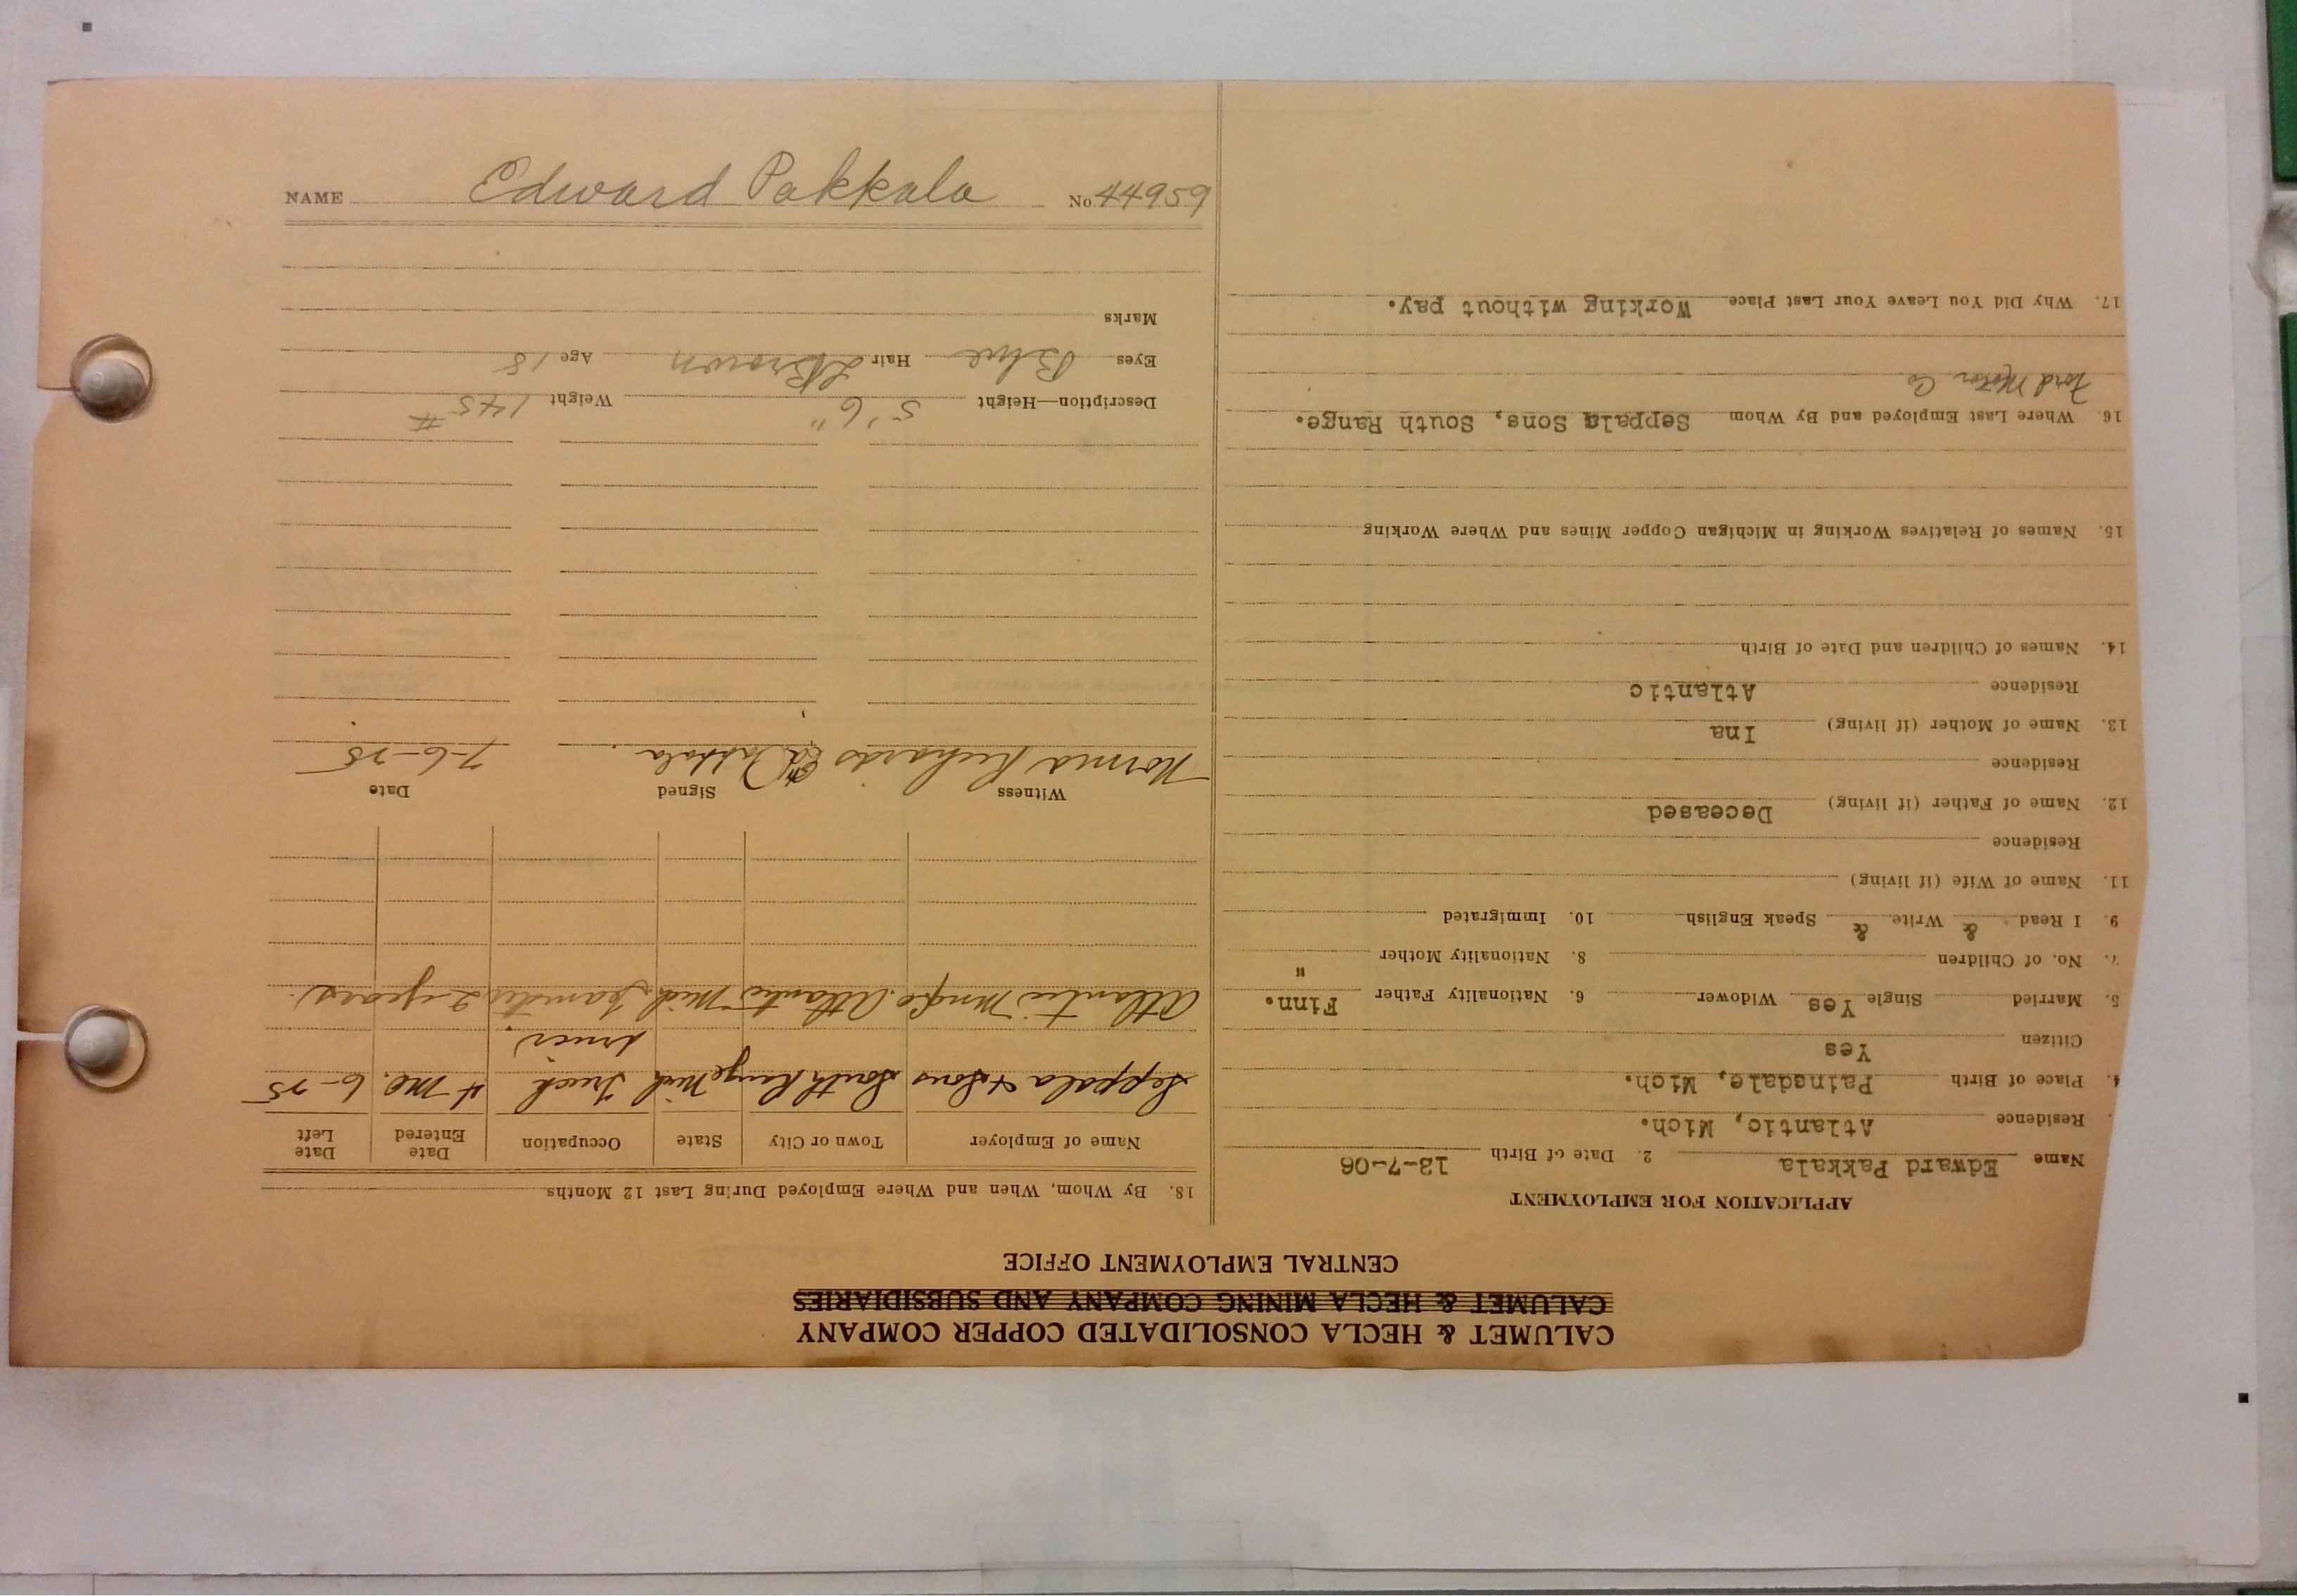 NAME Edward Pakkala No. 44959
CALUMET & HECLA CONSOLIDATED COPPER COMPANY
CALUMET & HECLA MINING COMPANY AND SUBSIDIARIES
CENTRAL EMPLOYMENT OFFICE
APPLICATION FOR EMPLOYMENT
Name Edward Pakkala 2. Date of Birth 12-7-06
Residence Atlantic, Mich.
4. Place of Birth Painsdale, Mich.
Citizen Yes
5. Married Single Yes Widower 6. Nationality Father Finn.
7. No. of Children 8. Nationality Mother "
9. I Read & Write & Speak English 10. Immigrated
11. Name of Wife (if living)
Residence
12. Name of Father (if living) Deceased
Residence
13. Name of Mother (if living) Ina
Residence Atlantic
14. Names of Children and Date of Birth
15. Names of Relatives Working in Michigan Copper Mines and Where Working
16. Where Last Employed and By Whom Seppala Sons, South Range.
Ford Motor Co
17. Why Did You Leave Your Last Place Working without pay.
18. By Whom, When and Where Employed During Last 12 Months
Name of Employer Town or City State Occupation Date Entered Date Left
Seppala & Sons South Range Mich Truck 4 Mo. 6-25
driver
Atlantic Mngfo. Atlantic Mich Teamster 2 years
Witness Signed Date
Norma Richards Ed Pakkala 7-6-25
Description—Height 5' 6" Weight 145 #
Eyes Blue Hair L Brown Age 18
Marks